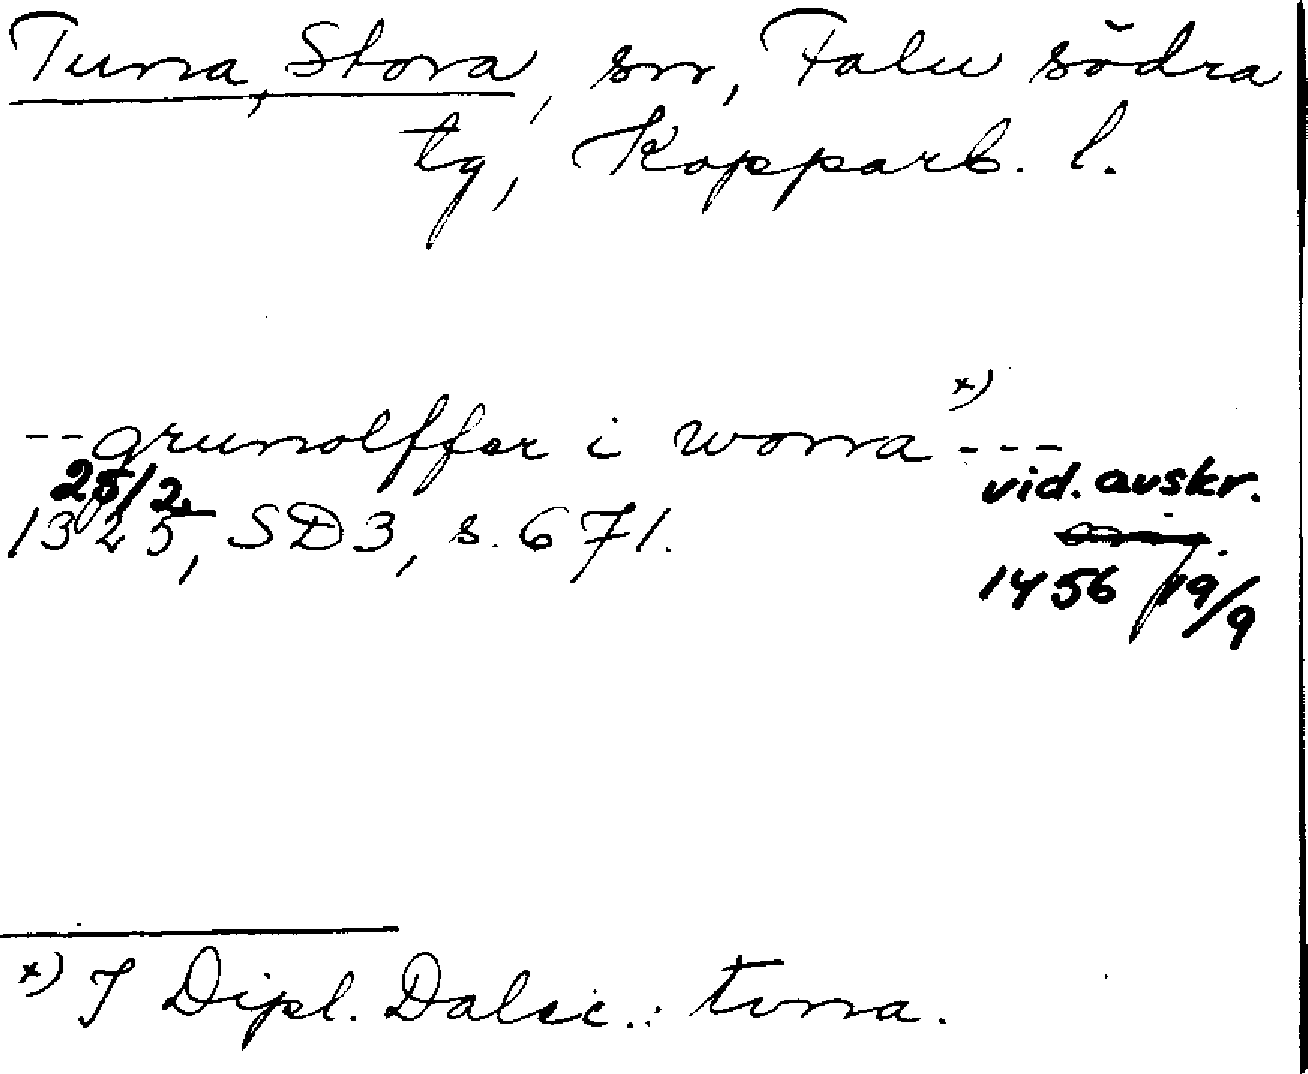 Tuna, Stora, sn, Falu södra
tg, Kopparb. l.
x)
--grunolffer i wonna ---
25/2 vid. avskr.
1325, SD3, s. 671.
1456 19/9
x) I Dipl. Dalec.: tvna.